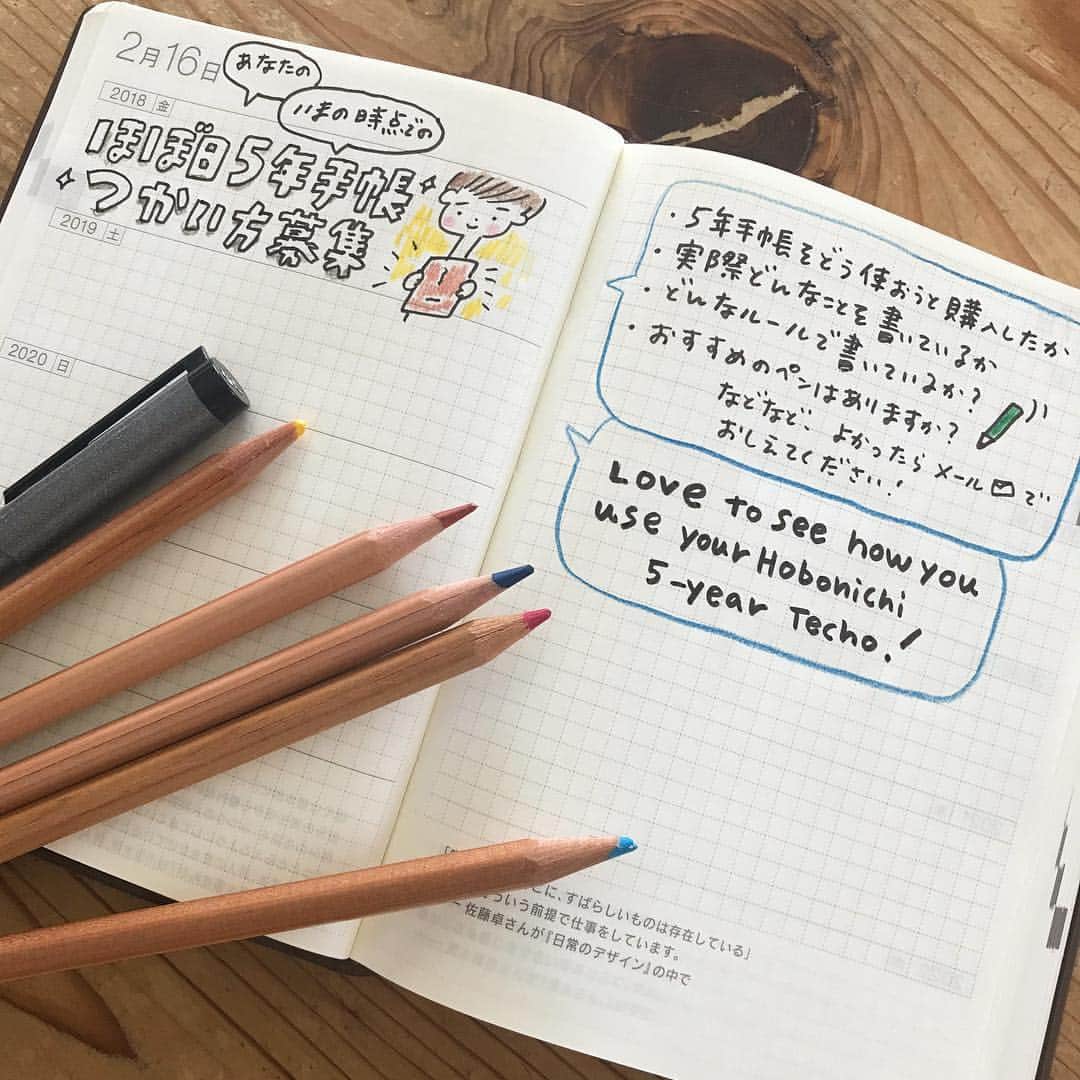 2月16日
あなたの
いまの時点での
2018 金
ほぼ日5年手帳
つかい方募集
2019 土
2020 日
・5年手帳をどう使おうと購入したか
・実際どんなことを書いているか
・どんなルールで書いているか?
・おすすめのペンはありますか?
などなど、よかったらメールで
おしえてください!
Love to see how you
use your Hobonichi
5-year Techo!
こに、すばらしいものは存在している」
ういう前提で仕事をしています。
佐藤卓さんが『日常のデザイン』の中で